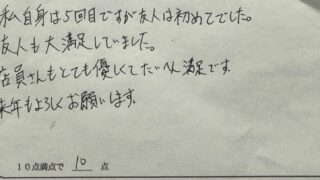 私自身は5回目ですが友人は初めてでした。
友人も大満足していました。
店員さんもとても優しくてたいへん満足です。
来年もよろしくお願いします。
10点満点で 10 点